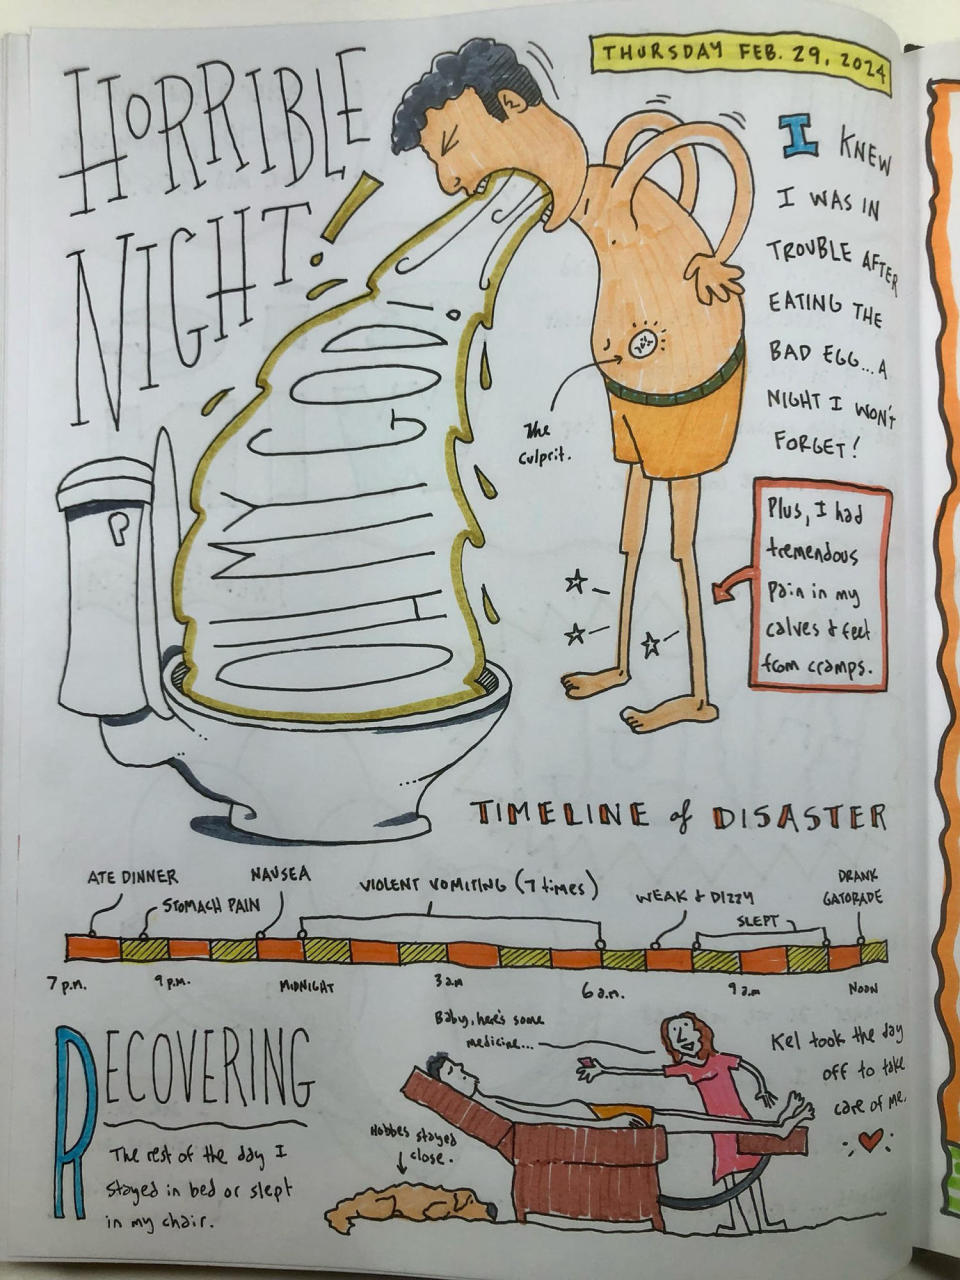 HORRIBLE
NIGHT!
THURSDAY FEB. 29, 2024
I KNEW
I WAS IN
TROUBLE AFTER
EATING THE
BAD EGG... A
NIGHT I WON'T
FORGET!
OH MY GOD!
The
culprit.
Plus, I had
tremendous
pain in my
calves & feet
from cramps.
TIMELINE of DISASTER
ATE DINNER
STOMACH PAIN
NAUSEA
VIOLENT VOMITING (7 times)
WEAK & DIZZY
SLEPT
DRANK
GATORADE
7 p.m.
9 p.m.
MIDNIGHT
3 am
6 a.m.
9 a.m
NOON
RECOVERING
The rest of the day I
stayed in bed or slept
in my chair.
Baby, here's some
medicine...
Hobbes stayed
close.
Kel took the day
off to take
care of me.